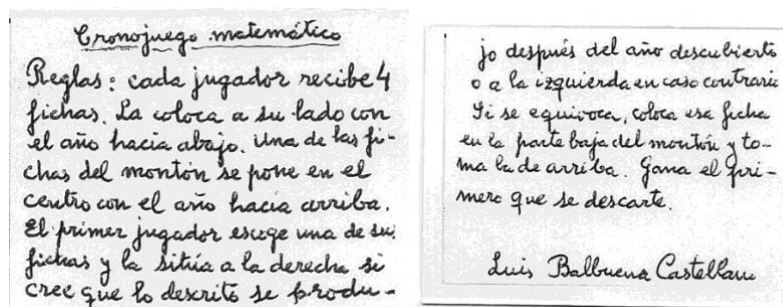 Cronojuego matemático
Reglas: cada jugador recibe 4
fichas. La coloca a su lado con
el año hacia abajo. Una de las fi-
chas del montón se pone en el
centro con el año hacia arriba.
El primer jugador escoge una de su
fichas y la sitúa a la derecha si
cree que lo descrito se produ-
jo después del año descubierto
o a la izquierda en caso contrario
Si se equivoca, coloca esa ficha
en la parte baja del montón y to-
ma la de arriba. Gana el pri-
mero que se descarte.
Luis Balbuena Castellano